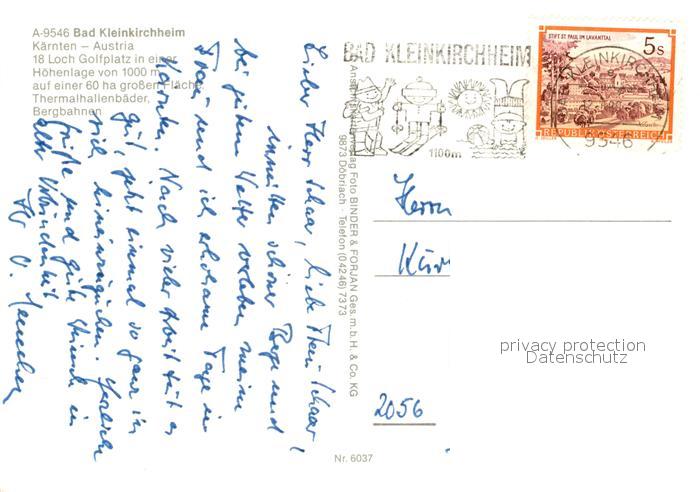 A-9546 Bad Kleinkirchheim
Kärnten – Austria
18 Loch Golfplatz in einer
Höhenlage von 1000 m
auf einer 60 ha großen Fläche.
Thermalhallenbäder,
Bergbahnen
BAD KLEINKIRCHHEIM
1100m
STIFT ST. PAUL IM LAVANTTAL
5s
REPUBLIK ÖSTERREICH
KLEINKIRCH
9546
Lieber Herr Schaar, liebe Frau Schaar,
inmitten schöner Berge und
bei gutem Wetter verleben meine
Frau und ich erholsame Tage in
Kärnten. Nach vieler Arbeit tut es
gut, jetzt einmal so ganz in
sich
Grüße und gute Wünsche in
alter Verbundenheit
Ihr
Foto BINDER & FORJAN Ges.m.b.H. & Co. KG
9873 Döbriach - Telefon (04246) 7373
Herrn
2056
privacy protection
Datenschutz
Nr. 6037